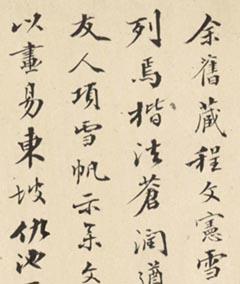 余舊藏程文憲雪
列焉楷法蒼潤遒
友人項雪帆示文
以畫易東坡仇池